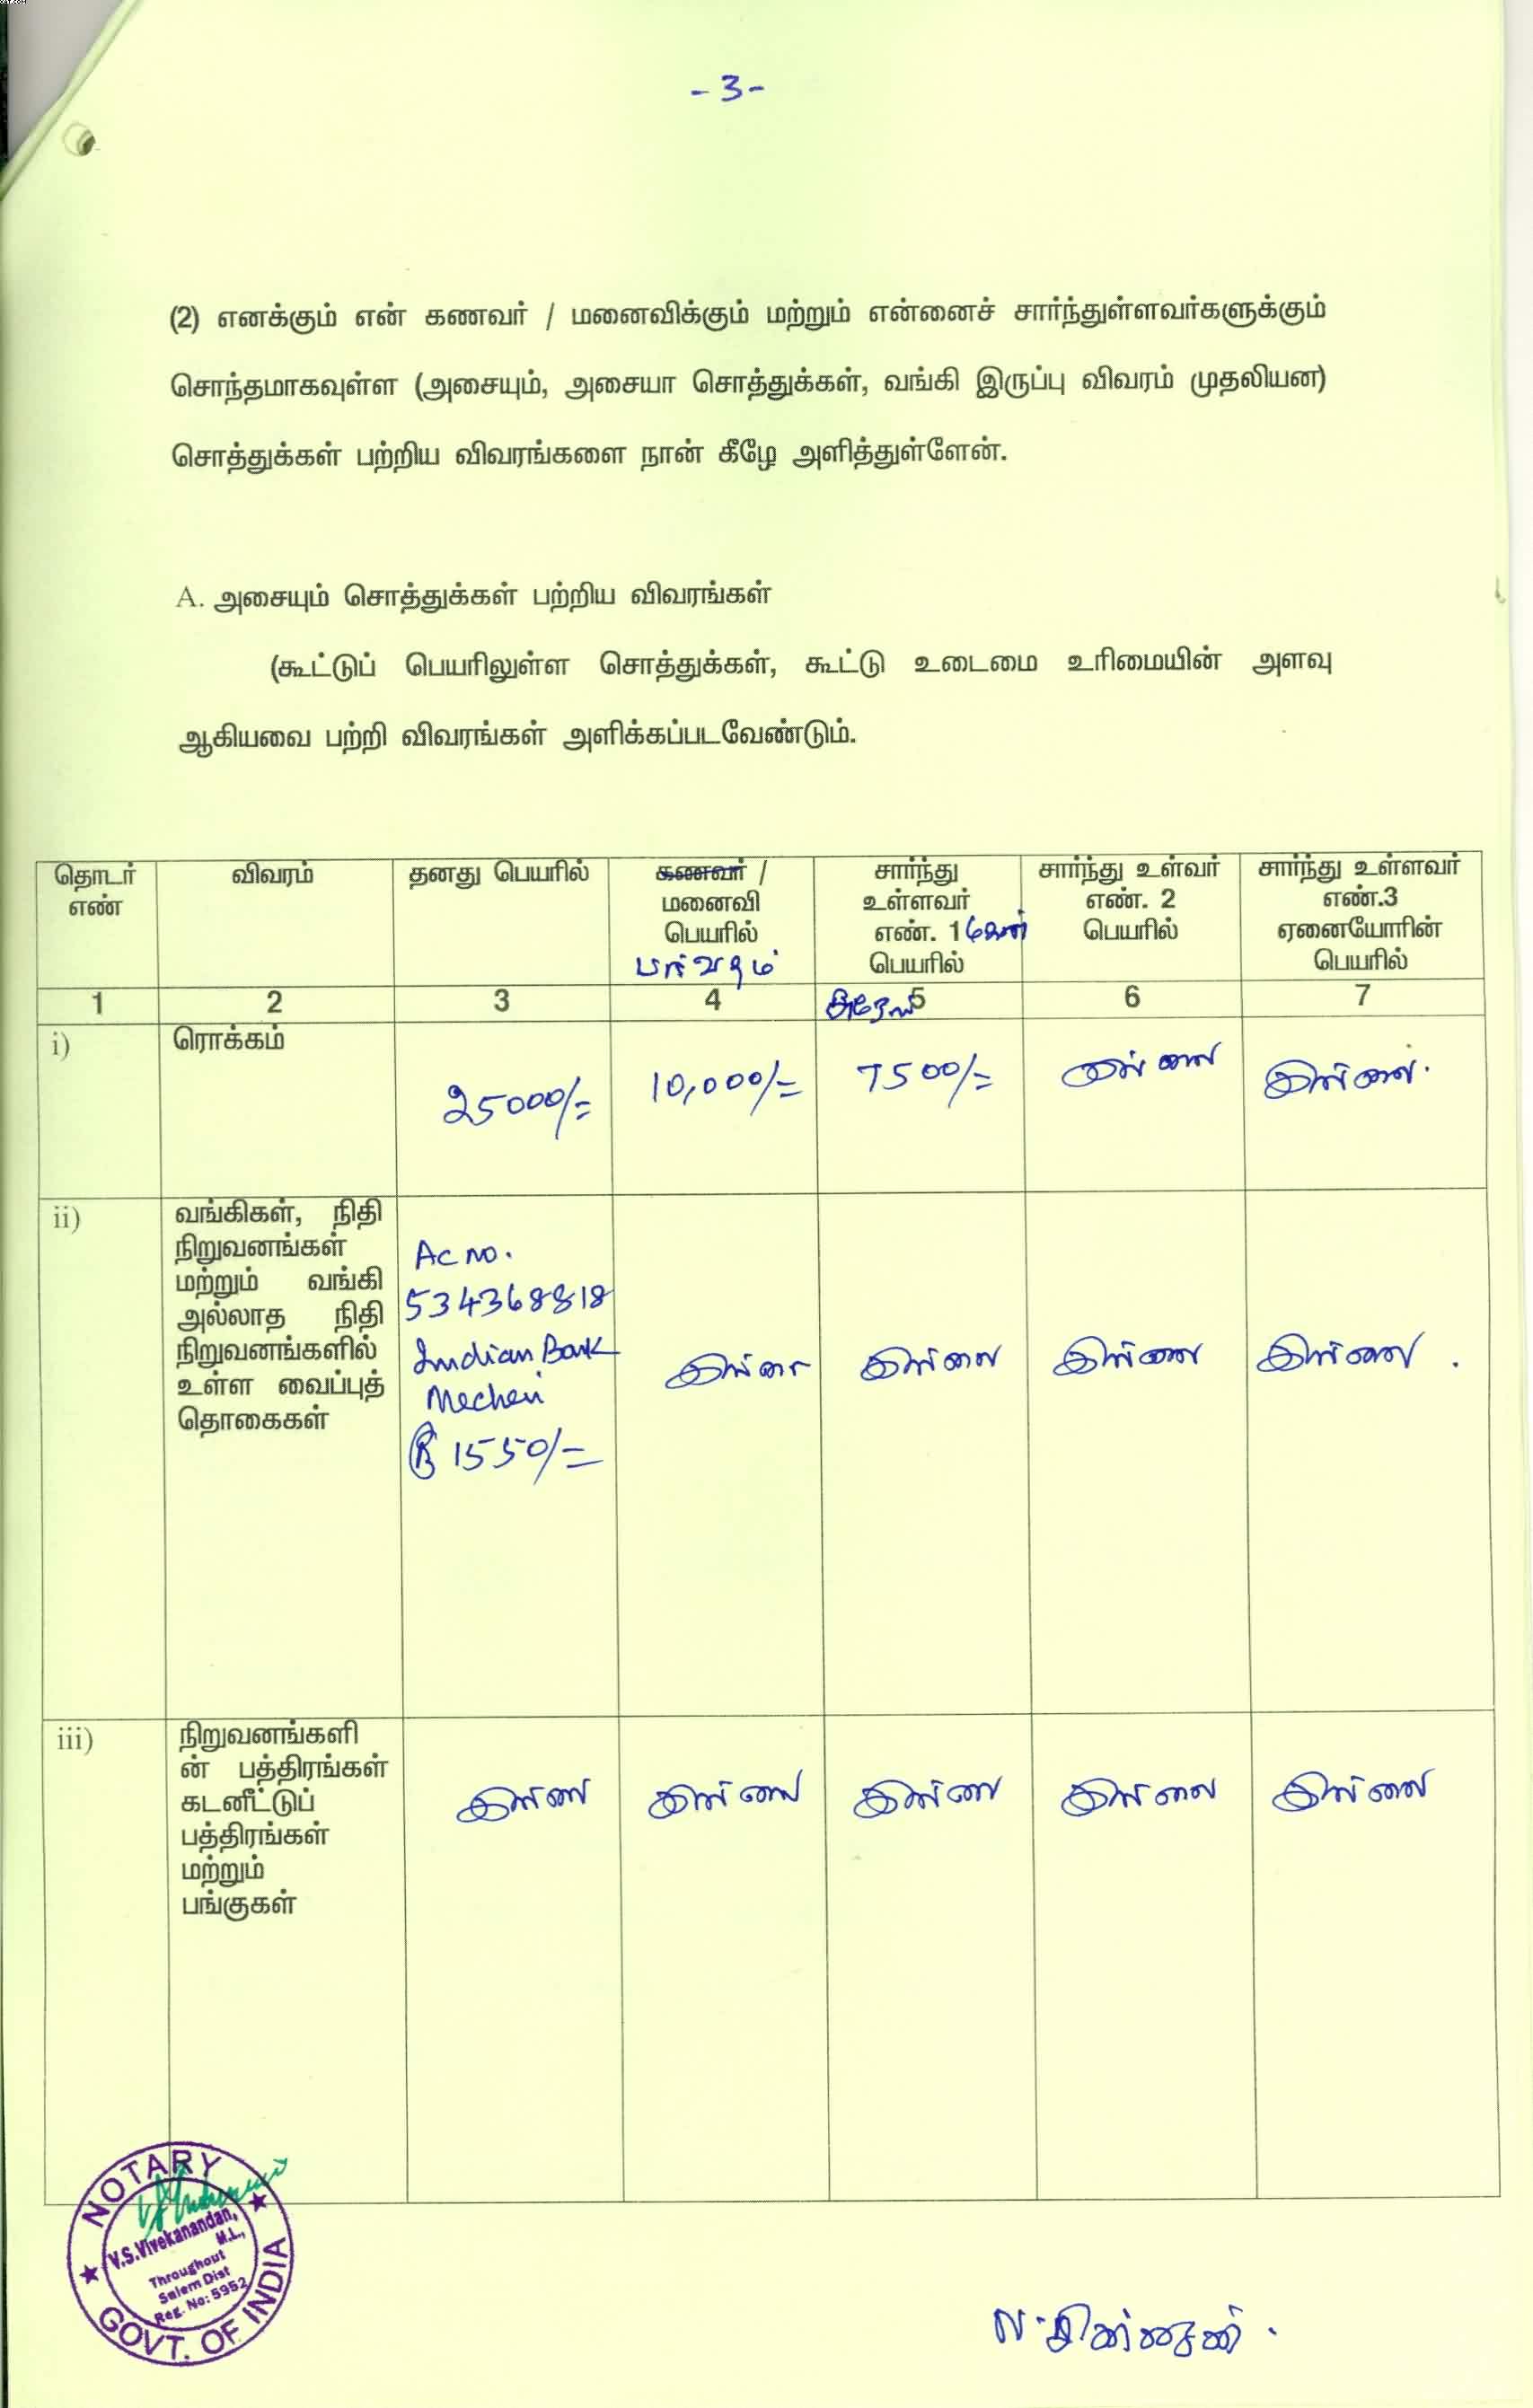 -3-
(2) எனக்கும் என் கணவர் / மனைவிக்கும் மற்றும் என்னைச் சார்ந்துள்ளவர்களுக்கும்
சொந்தமாகவுள்ள (அசையும், அசையா சொத்துக்கள், வங்கி இருப்பு விவரம் முதலியன)
சொத்துக்கள் பற்றிய விவரங்களை நான் கீழே அளித்துள்ளேன்.
A. அசையும் சொத்துக்கள் பற்றிய விவரங்கள்
(கூட்டுப் பெயரிலுள்ள சொத்துக்கள், கூட்டு உடைமை உரிமையின் அளவு
ஆகியவை பற்றி விவரங்கள் அளிக்கப்படவேண்டும்.
தொடர்
எண்
விவரம்
தனது பெயரில்
கணவர் /
மனைவி
பெயரில்
பார்வதம்
சார்ந்து
உள்ளவர்
எண். 1 மகன்
பெயரில்
சார்ந்து உள்வர்
எண். 2
பெயரில்
சார்ந்து உள்ளவர்
எண்.3
ஏனையோரின்
பெயரில்
1 2 3 4 5 6 7
i)
ரொக்கம்
25000/=
10,000/=
7500/=
இல்லை
இல்லை.
ii)
வங்கிகள், நிதி
நிறுவனங்கள்
மற்றும் வங்கி
அல்லாத நிதி
நிறுவனங்களில்
உள்ள வைப்புத்
தொகைகள்
Ac no.
534368818
Indian Bank
Mecheri
Rs 1550/=
இல்லை
இல்லை
இல்லை
இல்லை .
iii)
நிறுவனங்களி
ன் பத்திரங்கள்
கடனீட்டுப்
பத்திரங்கள்
மற்றும்
பங்குகள்
இல்லை
இல்லை
இல்லை
இல்லை
இல்லை
NOTARY
V.S.Vivekanandan,
M.L.,
Throughout
Salem Dist
Reg. No: 5952
GOVT. OF INDIA